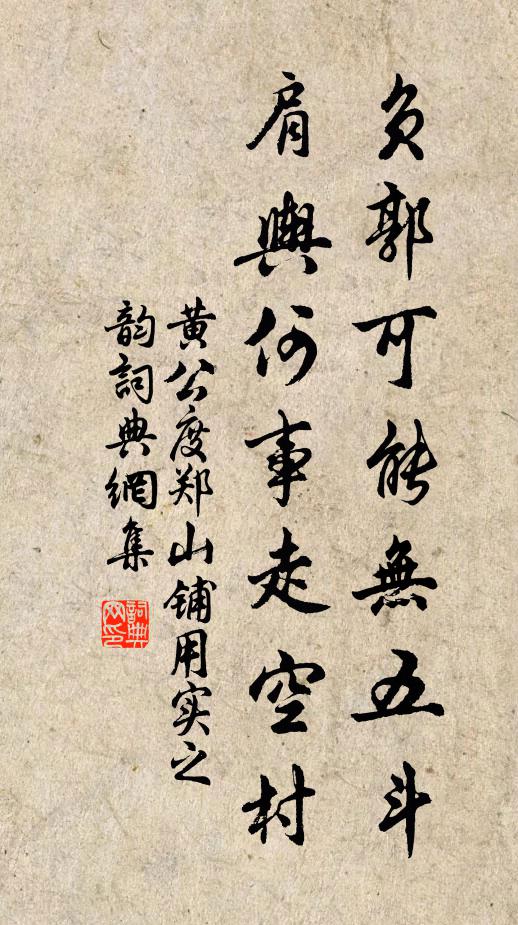 负郭可能無五斗
肩輿何事走空村
黄公度郑山铺用实之
韵詞典網集
詞典网印